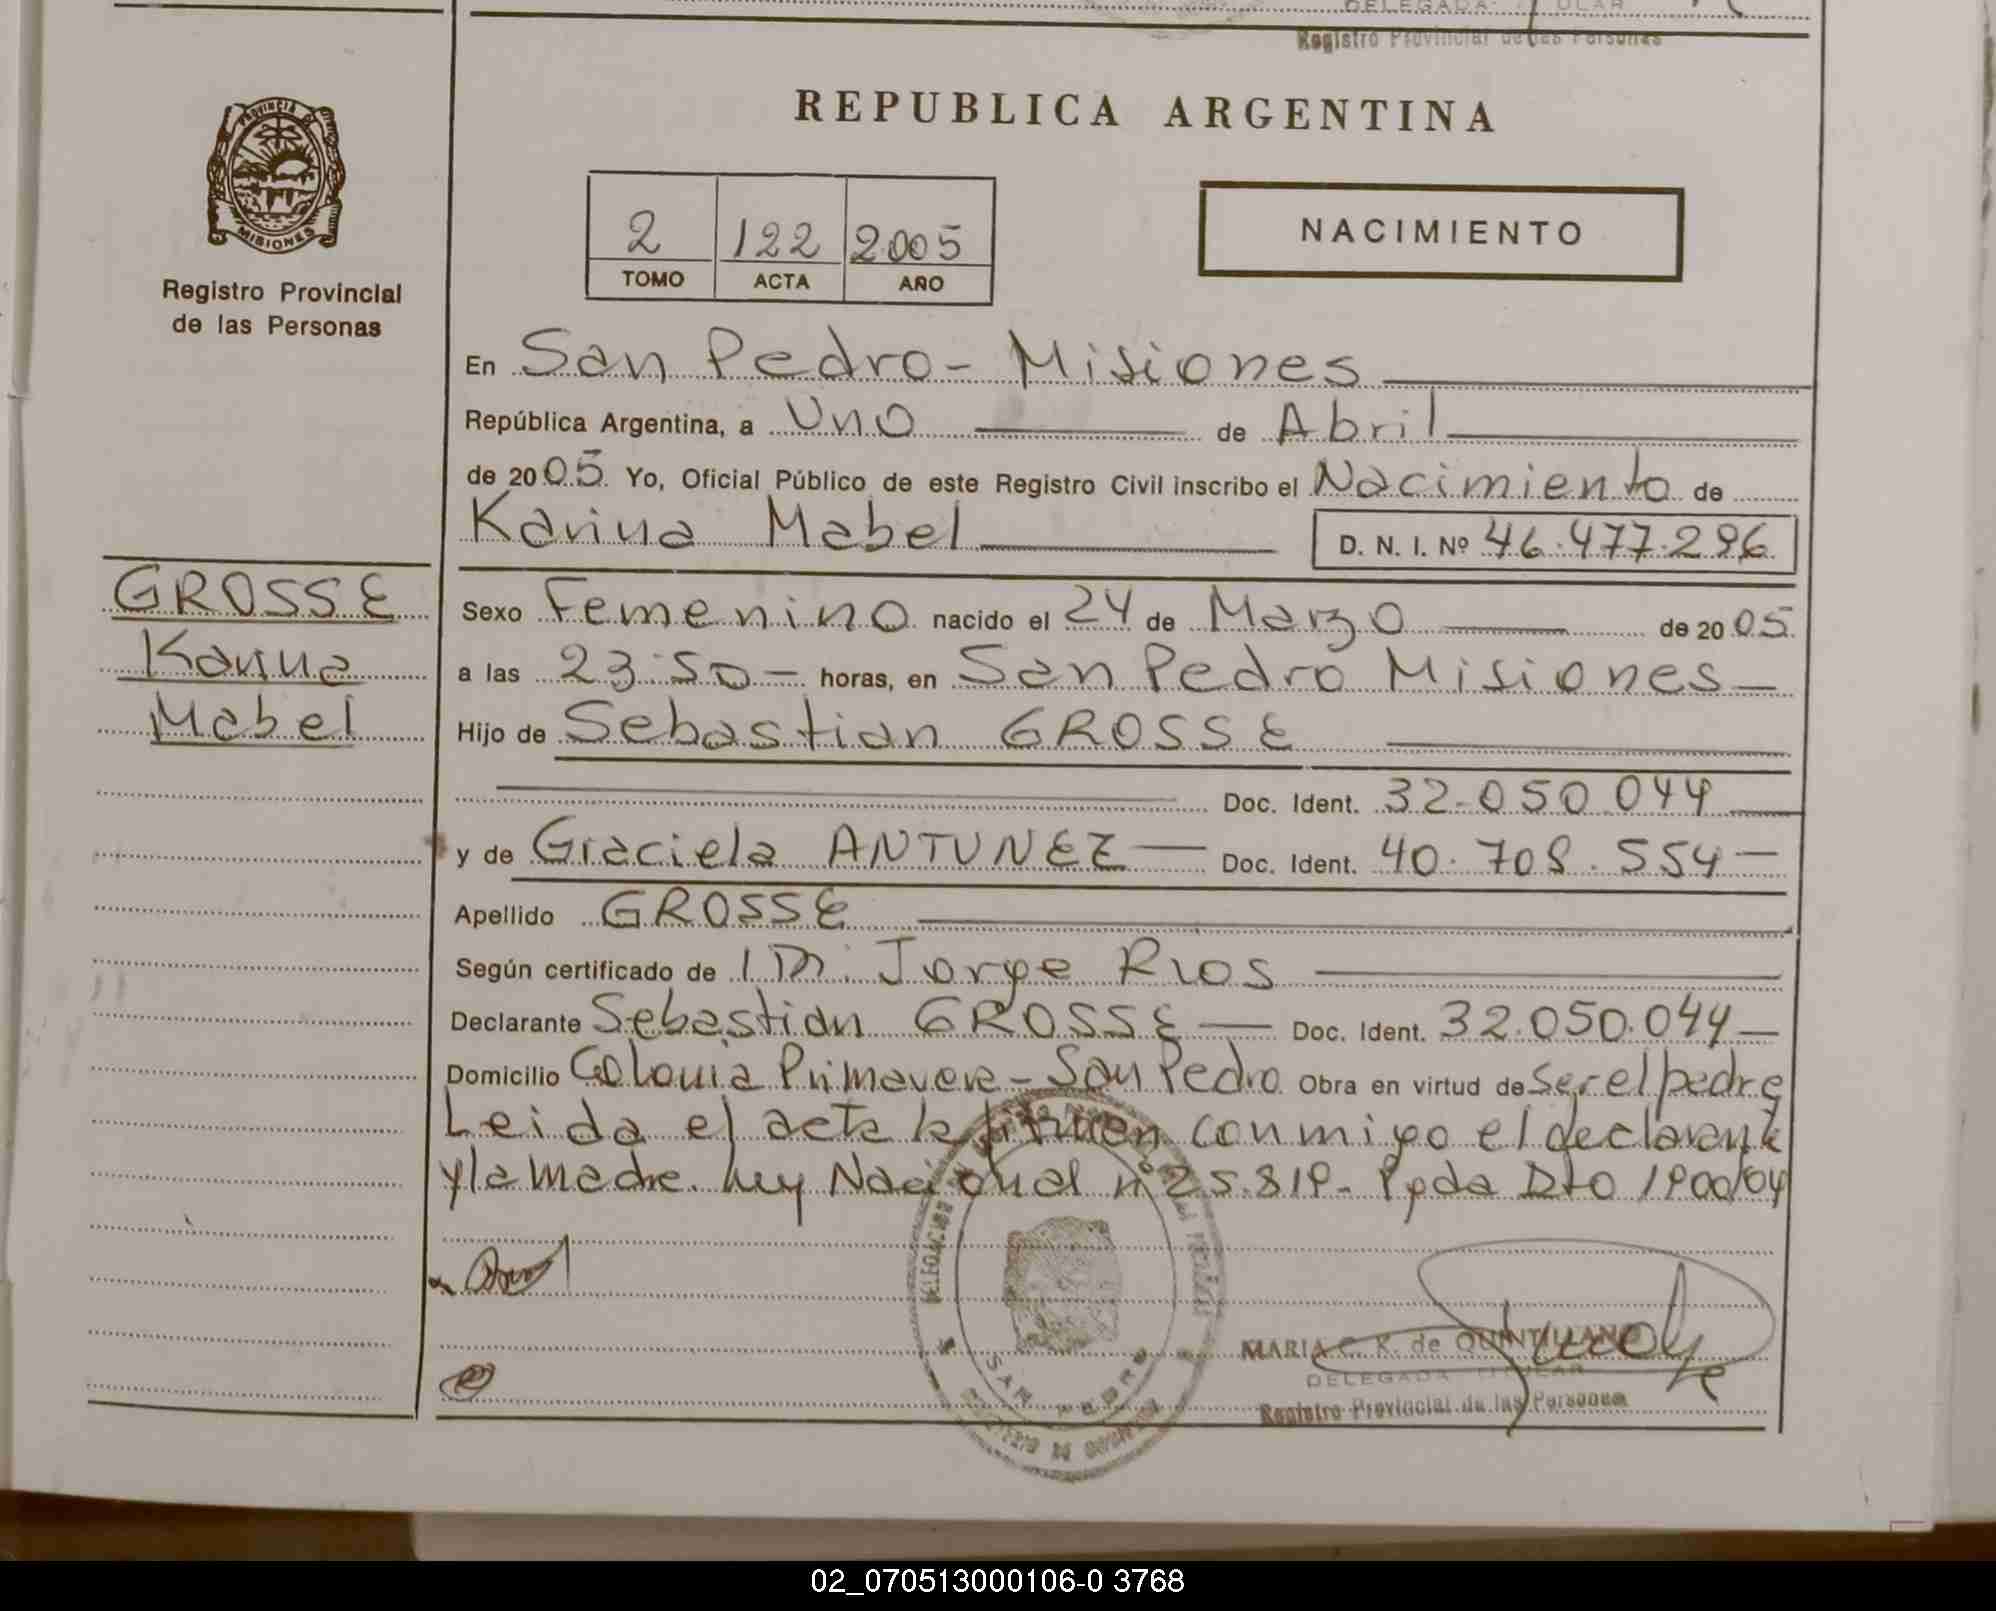 DELEGADA TITULAR
Registro Provincial de las Personas
PROVINCIA DE
MISIONES
Registro Provincial
de las Personas
REPUBLICA ARGENTINA
2 122 2005
TOMO ACTA AÑO
NACIMIENTO
En San Pedro - Misiones
República Argentina, a Uno de Abril
de 2005. Yo, Oficial Público de este Registro Civil inscribo el Nacimiento de
Karina Mabel D. N. I. Nº 46.477.296
GROSSE
Karina
Mabel
Sexo Femenino nacido el 24 de Marzo de 2005
a las 23:50 - horas, en San Pedro Misiones -
Hijo de Sebastian GROSSE
Doc. Ident. 32.050.044
y de Graciela ANTUNEZ - Doc. Ident. 40.708.554 -
Apellido GROSSE
Según certificado de Jorge Rios
Declarante Sebastian GROSSE - Doc. Ident. 32.050.044 -
Domicilio Colonia Primavera - San Pedro Obra en virtud de Ser el padre
Leida el acta la firman conmigo el declarante
y la madre. Ley Nacional nº 25.819 - Pgda Dto 1900/04
DELEGACION
SAN PEDRO
MINISTERIO DE GOBIERNO
MARIA C. K. de QUINTILLANO
DELEGADA TITULAR
Registro Provincial de las Personas
02_070513000106-0 3768